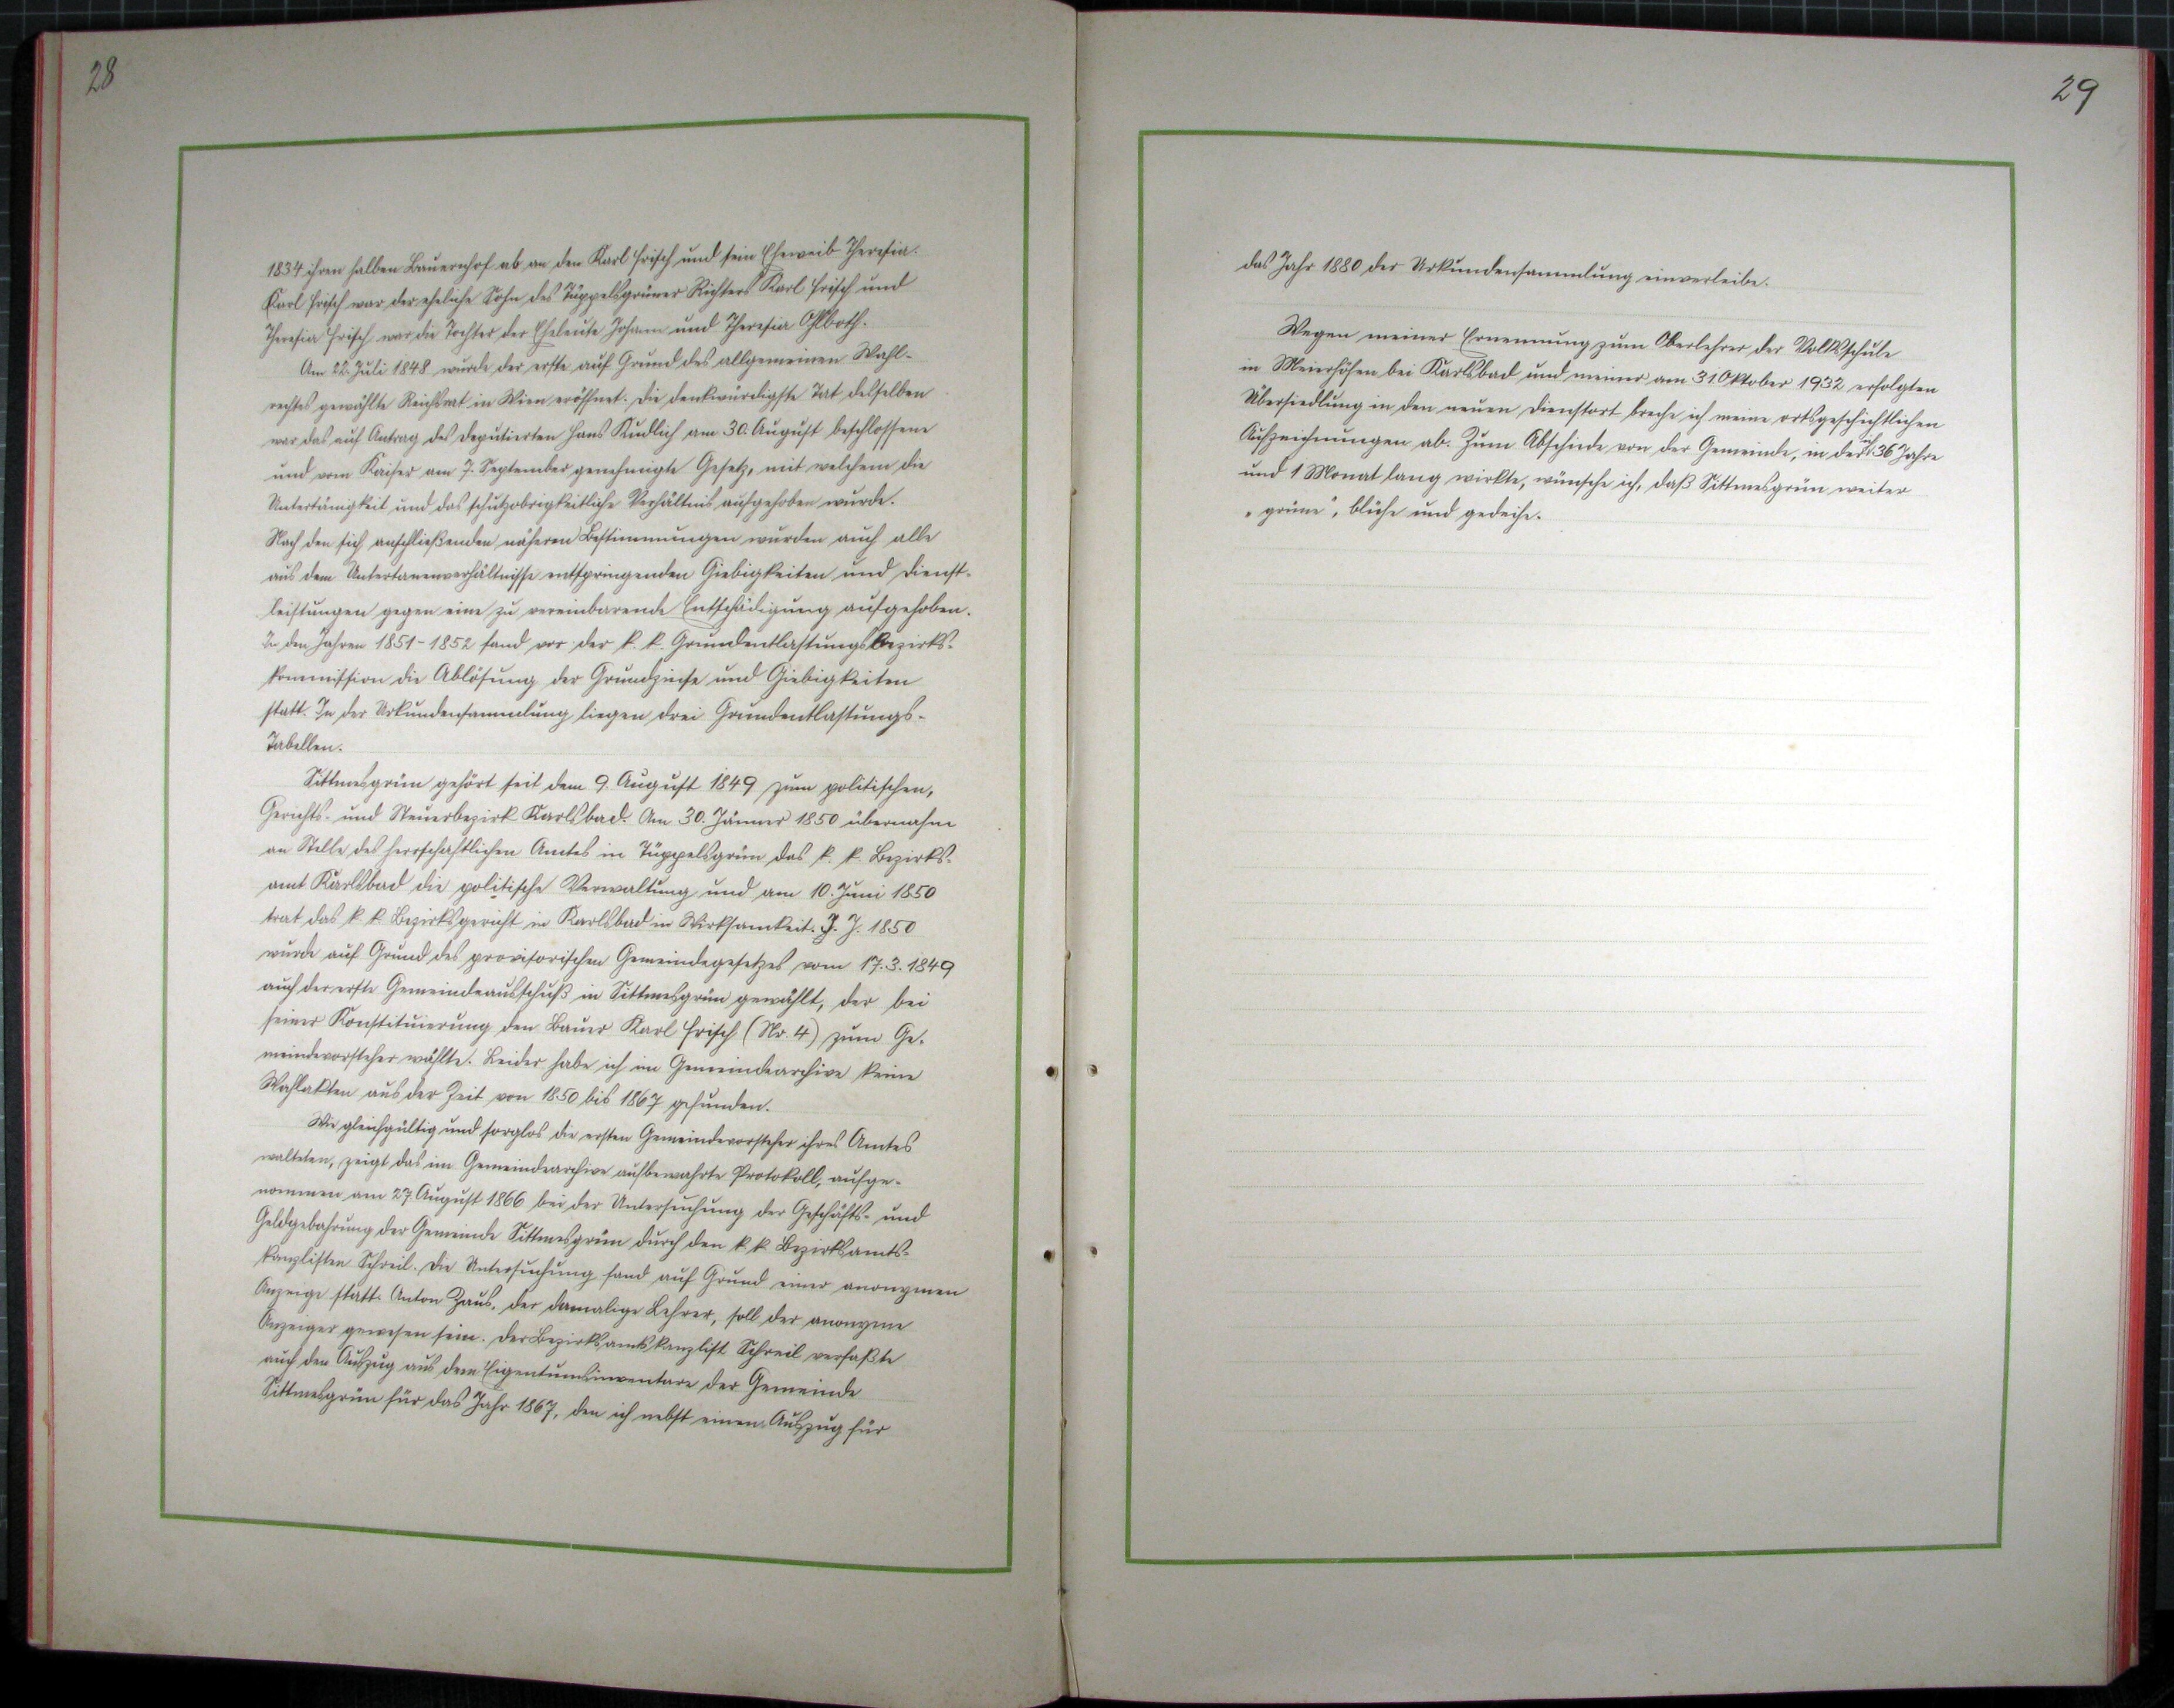 28
1834 ihren halben Bauernhof ab an den Karl Frisch und sein Eheweib Theresia.
Karl Frisch war der eheliche Sohn des Tüppelsgrüner Richters Karl Frisch und
Theresia Frisch war die Tochter der Eheleute Johann und Theresia Ohlboth.
Am 22. Juli 1848 wurde der erste auf Grund des allgemeinen Wahl-
rechtes gewählte Reichsrat in Wien eröffnet. Die denkwürdigste Tat desselben
war das auf Antrag des Deputierten Hans Kudlich am 30. August beschlossene
und vom Kaiser am 7. September genehmigte Gesetz, mit welchem die
Untertänigkeit und das schutzobrigkeitliche Verhältnis aufgehoben wurde.
Nach den sich anschließenden näheren Bestimmungen wurden auch alle
aus dem Untertanenverhältnisse entspringenden Giebigkeiten und Dienst-
leistungen gegen eine zu vereinbarende Entschädigung aufgehoben.
In den Jahren 1851-1852 fand vor der k. k. Grundentlastungsbezirks-
kommission die Ablösung der Grundzinse und Giebigkeiten
statt. In der Urkundensammlung liegen drei Grundentlastungs-
Tabellen.
Sittmesgrün gehört seit dem 9. August 1849 zum politischen,
Gerichts- und Steuerbezirk Karlsbad. Am 30. Jänner 1850 übernahm
an Stelle des herrschaftlichen Amtes in Tüppelsgrün das k. k. Bezirks-
amt Karlsbad die politische Verwaltung und am 10. Juni 1850
trat das k. k. Bezirksgericht in Karlsbad in Wirksamkeit. I. J. 1850
wurde auf Grund des provisorischen Gemeindegesetzes vom 17.3.1849
auch der erste Gemeindeausschuß in Sittmesgrün gewählt, der bei
seiner Konstituierung den Bauer Karl Frisch (Nr. 4) zum Ge-
meindevorsteher wählte. Leider habe ich im Gemeindearchive keine
Wahlakten aus der Zeit von 1850 bis 1867 gefunden.
Wie gleichgültig und sorglos die ersten Gemeindevorsteher ihres Amtes
walteten, zeigt das im Gemeindearchive aufbewahrte Protokoll, aufge-
nommen am 27. August 1866 bei der Untersuchung der Geschäfts- und
Geldgebahrung der Gemeinde Sittmesgrün durch den k. k. Bezirksamts-
kanzlisten Schreil. Die Untersuchung fand auf Grund einer anonymen
Anzeige statt. Anton Zaus, der damalige Lehrer, soll der anonyme
Anzeiger gewesen sein. Der Bezirksamtskanzlist Schreil verfaßte
auch den Auszug aus dem Eigentumsinventare der Gemeinde
Sittmesgrün für das Jahr 1867, den ich nebst einen Auszug für
29
das Jahr 1880 der Urkundensammlung einverleibe.
Wegen meiner Ernennung zum Oberlehrer der Volksschule
in Meierhöfen bei Karlsbad und meiner am 31. Oktober 1932 erfolgten
Übersiedlung in den neuen Dienstort breche ich meine ortsgeschichtlichen
Aufzeichnungen ab. Zum Abschiede von der Gemeinde, in der ich 36 Jahre
und 1 Monat lang wirkte, wünsche ich, daß Sittmesgrün weiter
„grüne", blühe und gedeihe.